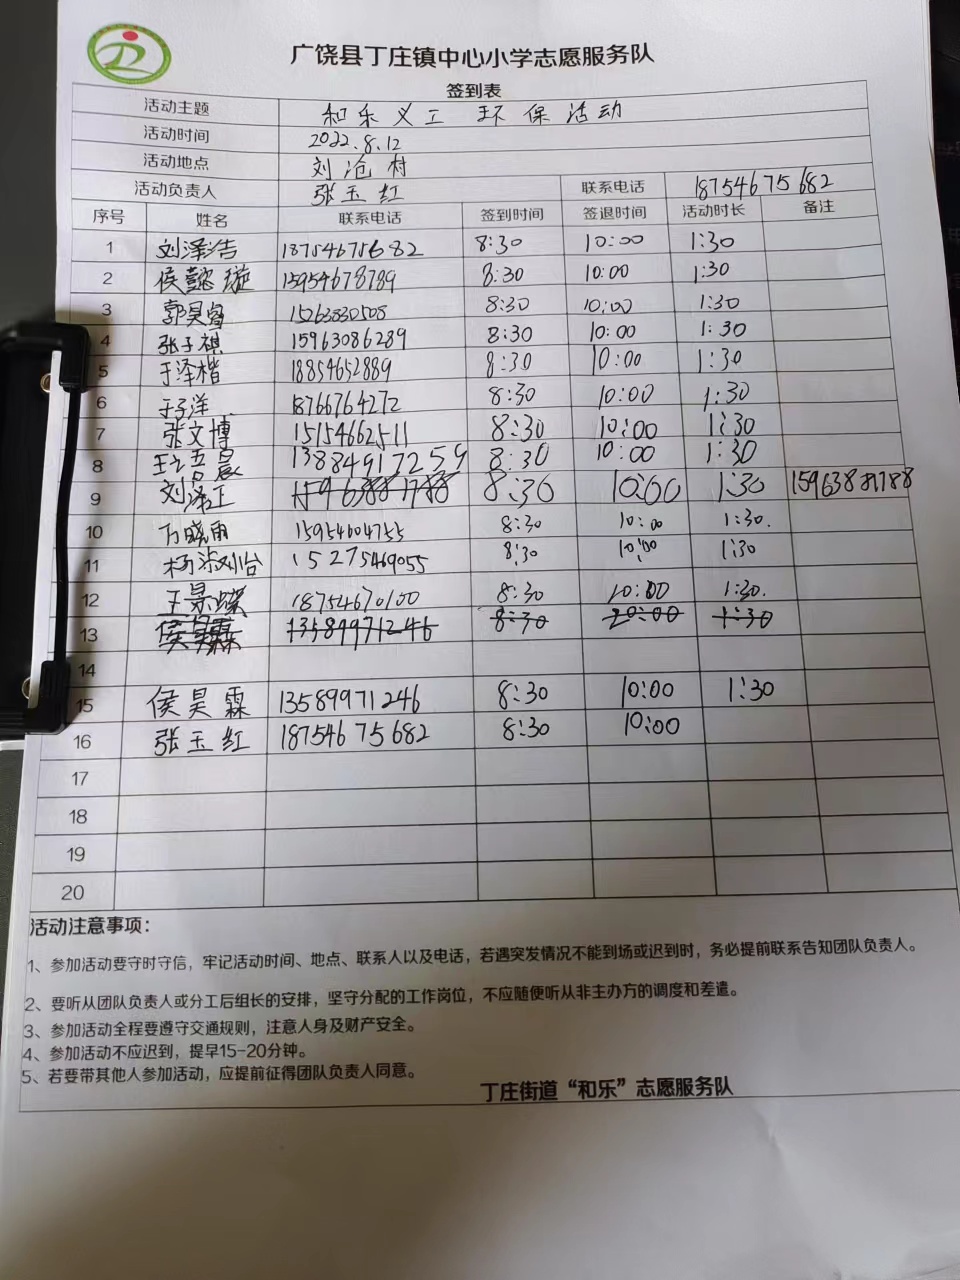 广饶县丁庄镇中心小学志愿服务队
签到表
活动主题 和乐义工 环保活动
活动时间 2022.8.12
活动地点 刘沧村
活动负责人 张玉红 联系电话 18754675682
序号 姓名 联系电话 签到时间 签退时间 活动时长 备注
1 刘泽浩 18754675682 8:30 10:00 1:30
2 侯懿璇 15954678789 8:30 10:00 1:30
3 郭昊睿 15263830508 8:30 10:00 1:30
4 张子祺 15963086289 8:30 10:00 1:30
5 于泽楷 18854652889 8:30 10:00 1:30
6 于子洋 18766764272 8:30 10:00 1:30
7 张文博 15154662511 8:30 10:00 1:30
8 13884917259 8:30 10:00 1:30
9 刘泽正 8:30 10:00 1:30
10 万晓雨 15954604755 8:30 10:00 1:30.
11 15275469055 8:30 10:00 1:30
12 王景蝶 18754670100 8:30 10:00 1:30.
13 侯昊霖 13589971246 8:30 10:00 1:30
14
15 侯昊霖 13589971246 8:30 10:00 1:30
16 张玉红 18754675682 8:30 10:00
17
18
19
20
活动注意事项：
1、参加活动要守时守信，牢记活动时间、地点、联系人以及电话，若遇突发情况不能到场或迟到时，务必提前联系告知团队负责人。
2、要听从团队负责人或分工后组长的安排，坚守分配的工作岗位，不应随便听从非主办方的调度和差遣。
3、参加活动全程要遵守交通规则，注意人身及财产安全。
4、参加活动不应迟到，提早15-20分钟。
5、若要带其他人参加活动，应提前征得团队负责人同意。
丁庄街道“和乐”志愿服务队